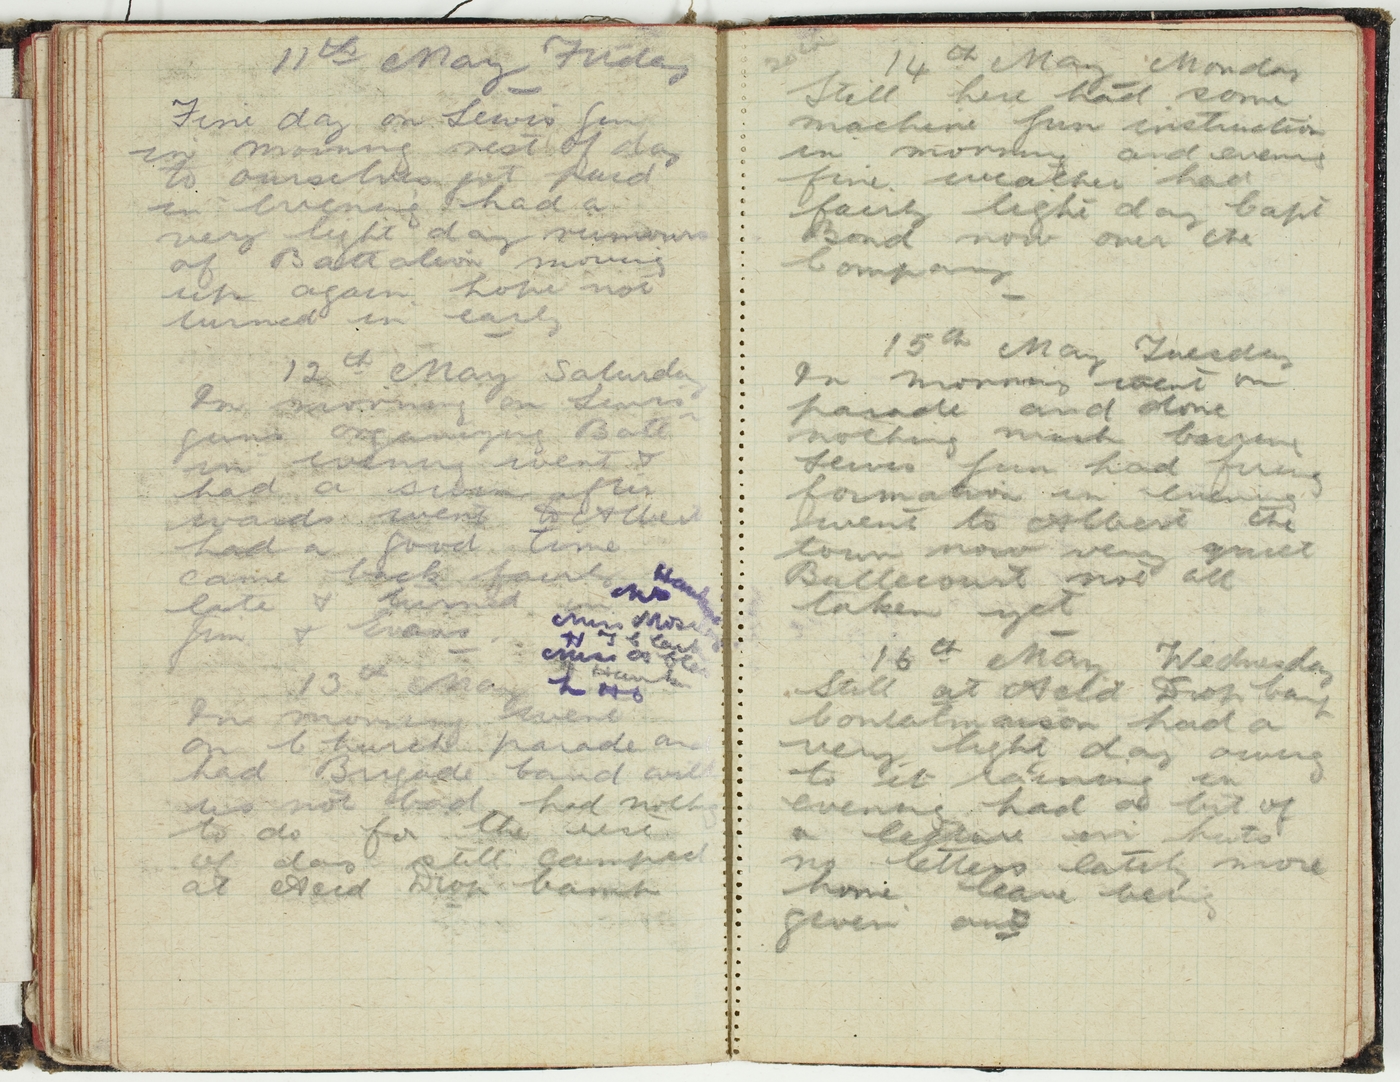 11th May Friday
Fine day on Lewis Gun
in morning rest of day
to ourselves got paid
in evening had a
very light day rumours
of Battalion moving
up again. hope not
turned in early
12th May Saturday
In morning on Lewis
guns organizing Batt n
in evening went &
had a swim after
wards went to Albert
had a good time
came back fairly
late & turned in
Jim & Evans.
13th May
In morning went
on Church parade an
had Brigade band and
was not bad, had nothg
to do for the rest
of day still camped
at Acid Drop Camp
Miss
20th
14th May Monday
Still here had some
machine gun instruction
in morning and evening
fine weather had
fairly light day Capt
Bond now over the
Company
15th May Tuesday
In morning went on
parade and done
nothing much
Lewis gun had firing
formation in evening
went to Albert the
town now very quiet
Bullecourt not all
taken yet
16th May Wednesday
Still at Acid Drop Camp
Contalmaison had a
very light day owing
to it raining in
evening had a bit of
a lecture in huts
no letters lately more
home leave being
given and